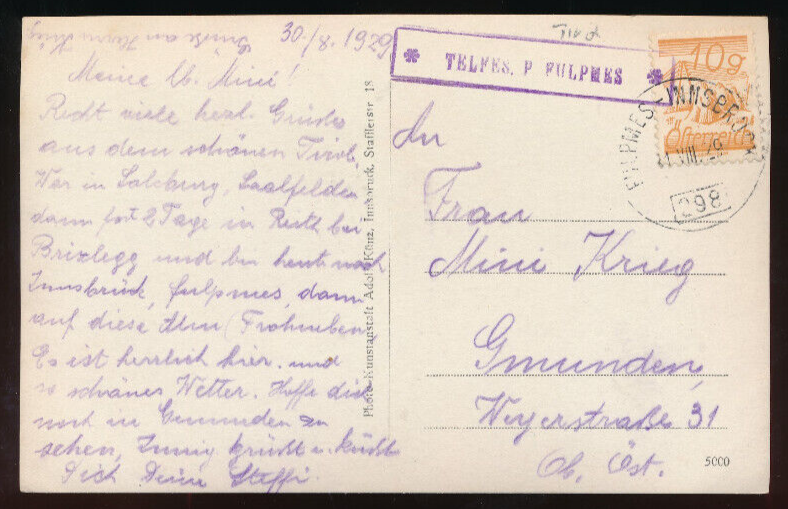 30./8. 1929
Grüße an Herrn Krieg
Meine lb. Mini!
Recht viele herzl. Grüße
aus dem schönen Tirol.
War in Salzburg, Saalfelden,
dann fort 2 Tage in Reith bei
Brixlegg und bin heute nach
Innsbruck, Fulpmes, dann
auf diese Alm (Frohneben)
Es ist herrlich hier und
so schönes Wetter. Hoffe dich
noch in Gmunden zu
sehen, Innig grüßt u. küßt
Dich Deine Steffi.
Photo-Kunstanstalt Adolf Künz, Innsbruck, Stafflerstr. 18
Tirol
* TELFES. P FULPMES *
10g
Österreich
FULPMES-INNSBRUCK
VIII. 29
298
An
Frau
Mini Krieg
Gmunden,
Weyerstraße 31
Ob. Öst.
5000